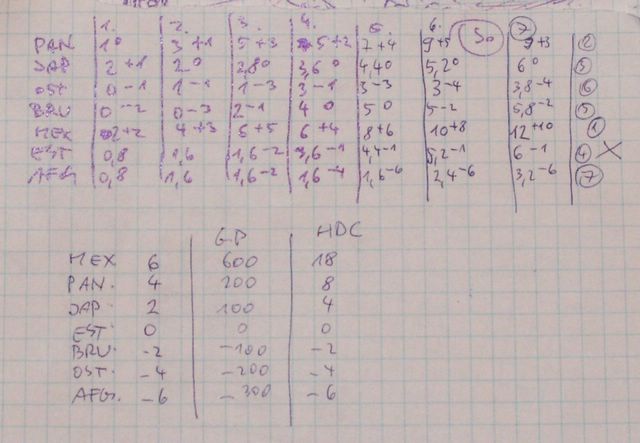 1. 2. 3. 4. 5. 6. 30 7
PAN 1⁰ 3+1 5+3 5+2 7+4 9+5 9+3 2
JAP 2+1 2⁰ 2,8⁰ 3,6⁰ 4,4⁰ 5,2⁰ 6⁰
OST 0-1 1-1 1-3 3-1 3-3 3-4 3,8-4 6
BRU 0-2 0-3 2-1 4⁰ 5⁰ 5-2 5,8-2 5
MEX 2+2 4+3 6+5 6+4 8+6 10+8 12+10 1
EST 0,8 1,6 1,6-2 3,6-1 4,4-1 5,2-1 6-1 4 X
AFG 0,8 1,6 1,6-2 1,6-4 1,6-6 2,4-6 3,2-6 7
GP HDC
MEX 6 600 18
PAN. 4 200 8
JAP 2 100 4
EST 0 0 0
BRU. -2 -100 -2
OST. -4 -200 -4
AFG. -6 -300 -6